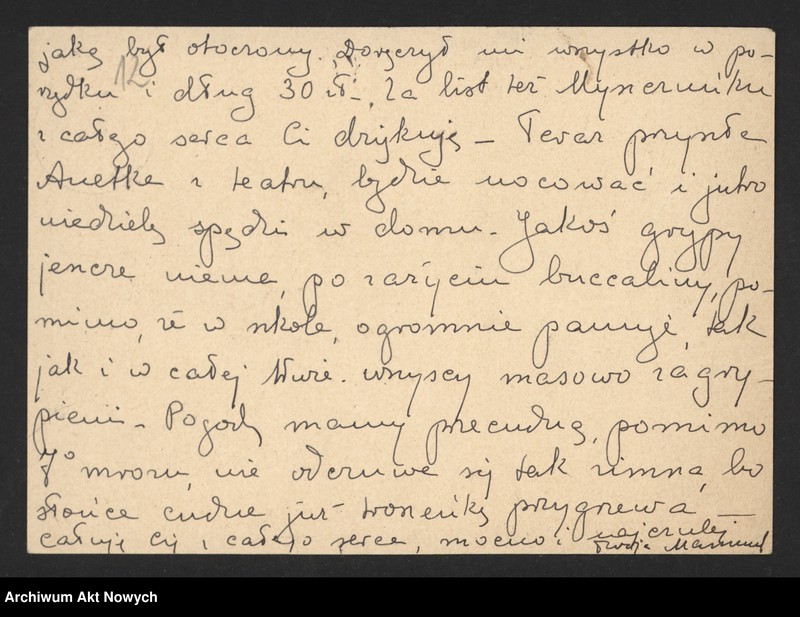 jaką był otoczony. Doręczył mi wszystko w po-
12
rządku i dług 30 zł-, za list też Myszeńku
z całego serca Ci dziękuję – Teraz przyszła
Anetka z teatru, będzie nocować i jutro
niedzielę spędzi w domu. Jakoś grypy
jeszcze niema, po zażyciu buccaliny, po-
mimo, że w szkole, ogromnie panuje, tak
jak i w całej Wwie. wszyscy masowo zagry-
pieni – Pogodę mamy przecudną, pomimo
7° mrozu, nie odczuwa się tak zimna, bo
słońce cudne już troszeńkę przygrzewa –
całuję Cię z całego serca, mocno i najczulej
Twoja
Archiwum Akt Nowych